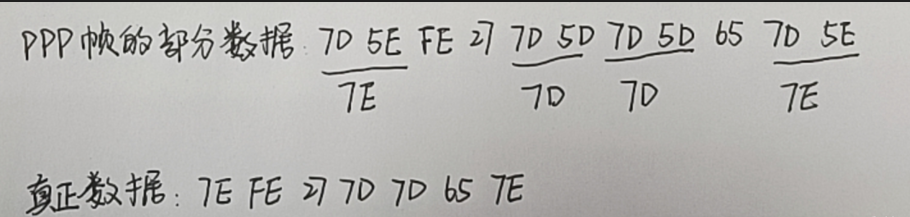 PPP帧的部分数据: 7D 5E FE 27 7D 5D 7D 5D 65 7D 5E
7E 7D 7D 7E
真正数据: 7E FE 27 7D 7D 65 7E